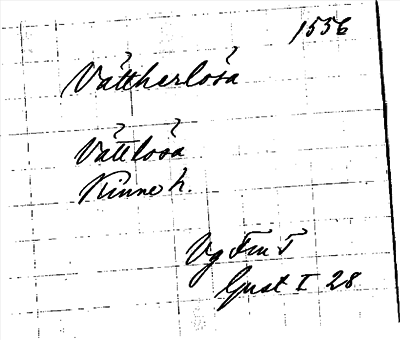 1556
Vättherlösa
Vättlösa
Kinne h.
Vg Fm 5
Gust I 28